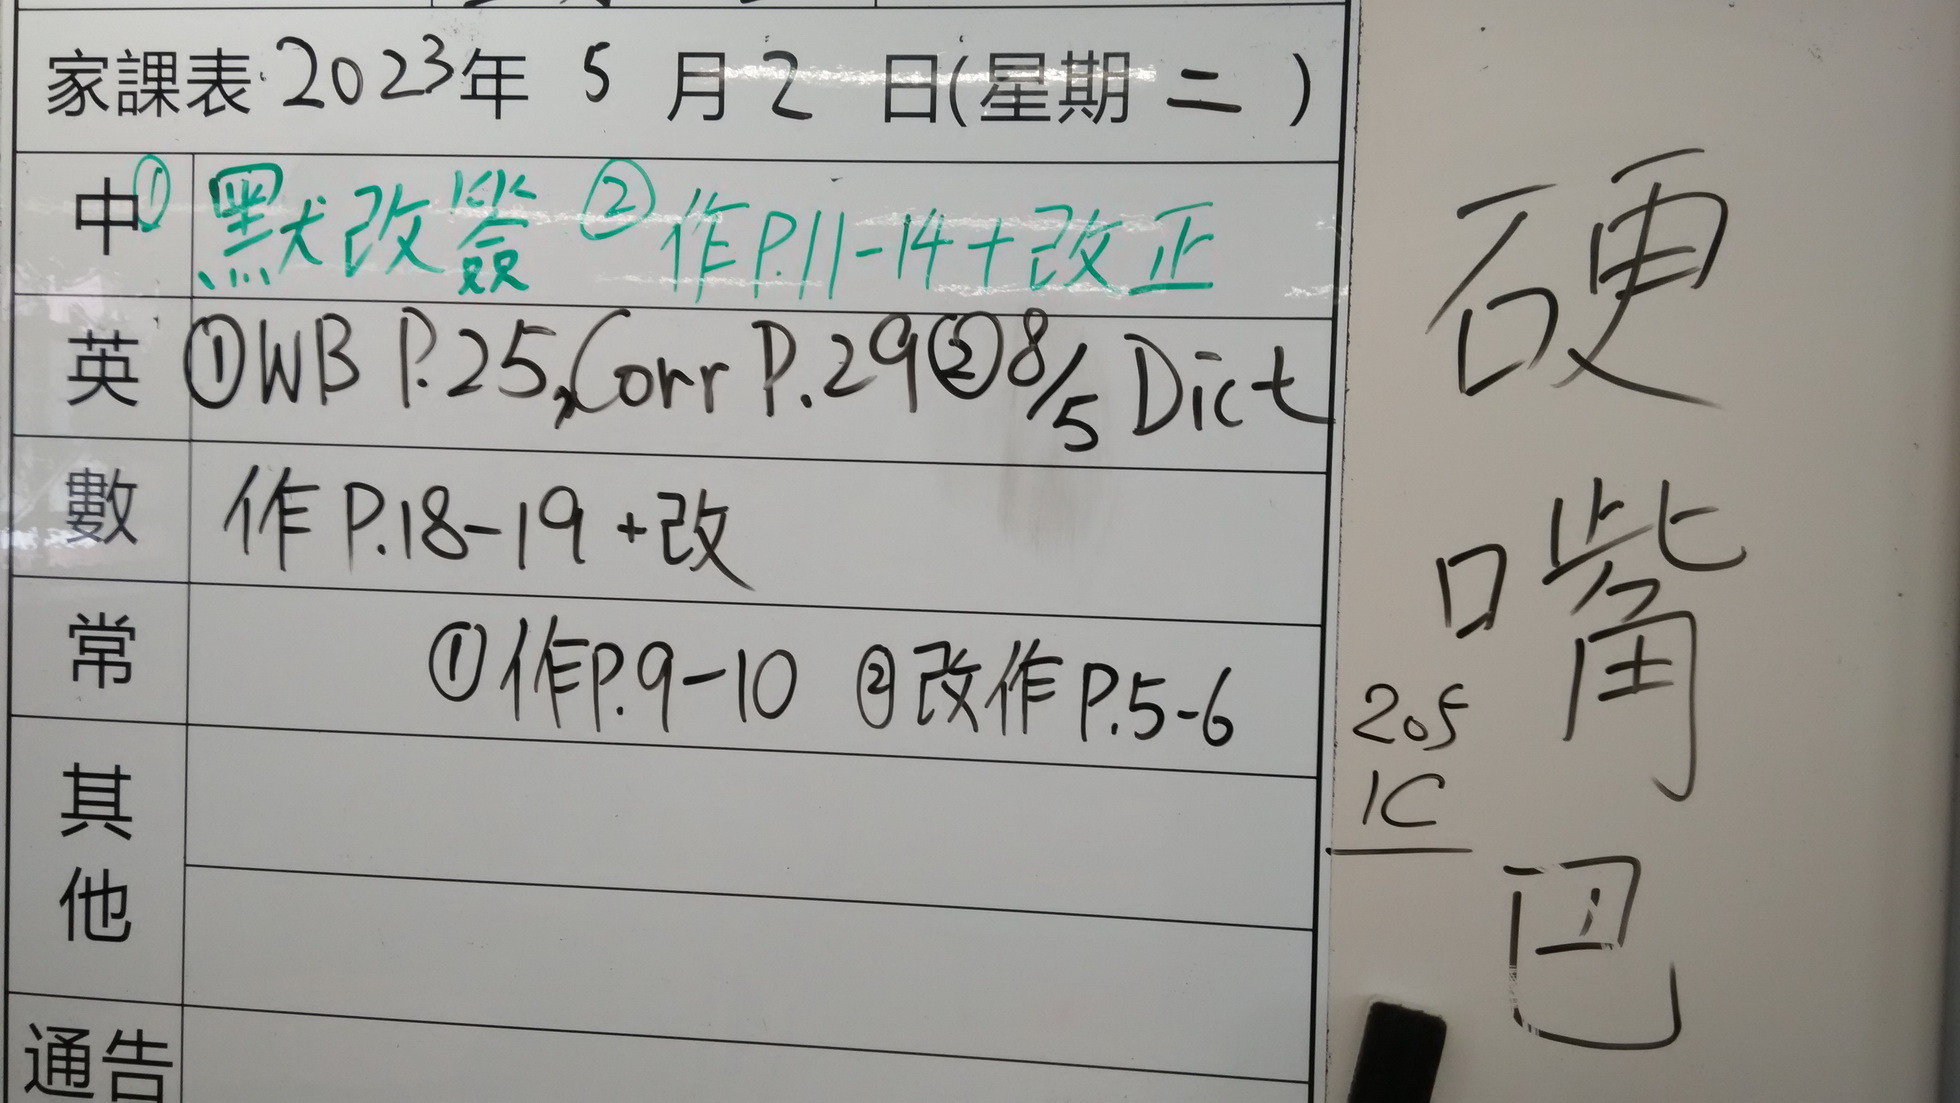 家課表 2023年 5 月 2 日(星期 二 )
中 ① 默改簽 ② 作P.11-14+改正
英 ①WB P.25, Corr P.29 ② 8/5 Dict
數 作 P.18-19 +改
常 ①作P.9-10 ②改作 P.5-6
其他
通告
硬
嘴
巴
205
1C